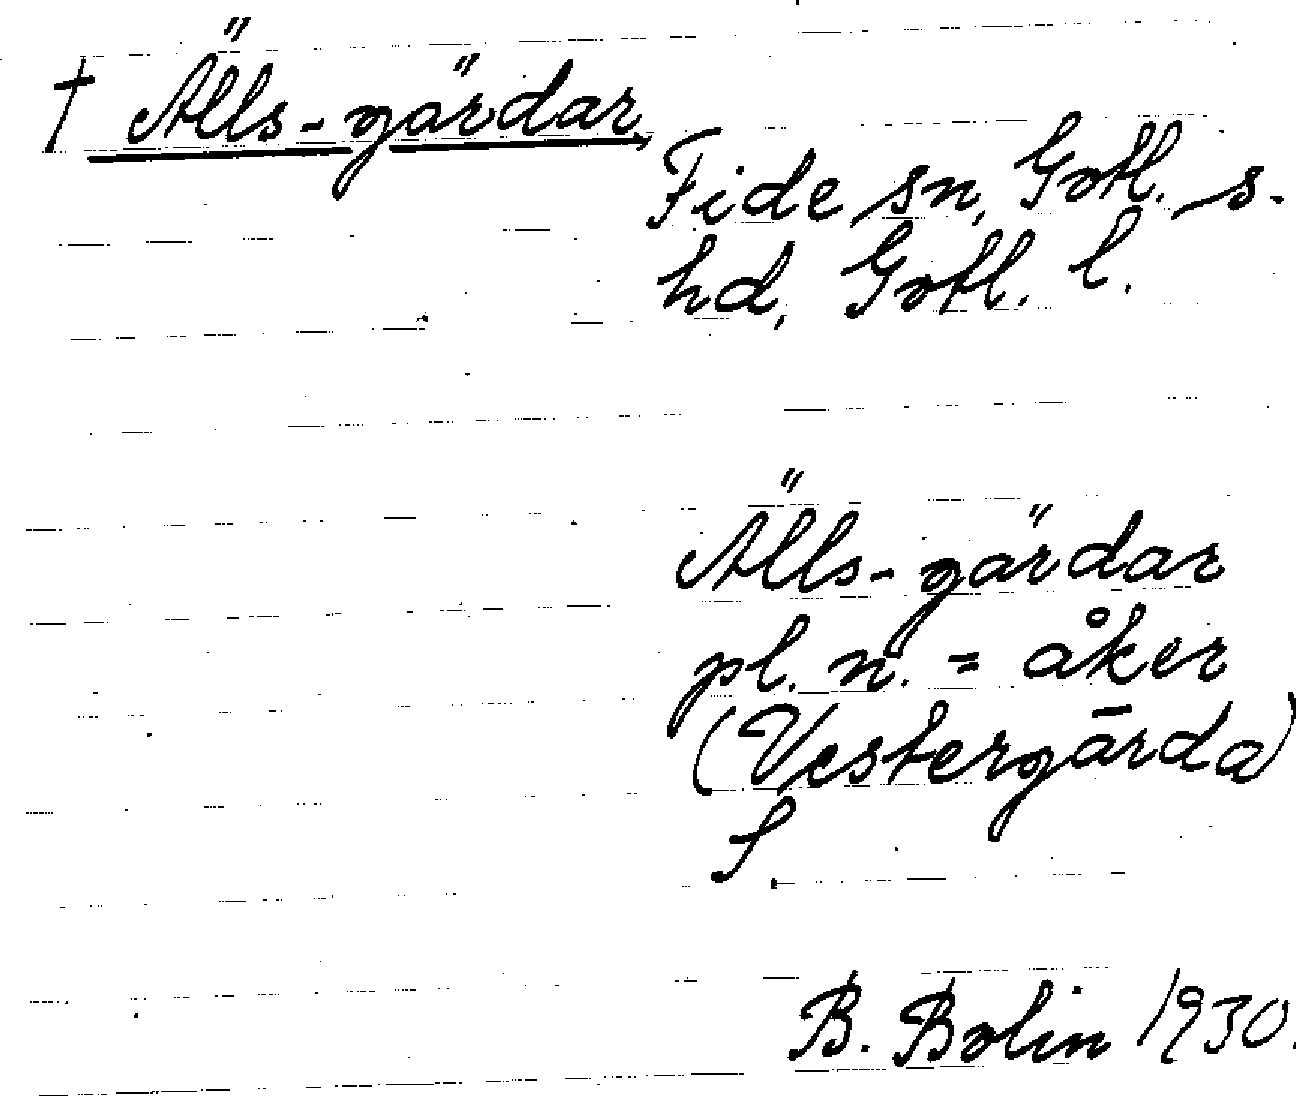 † Älls-gärdar,
Fide sn, Gotl. s.
hd, Gotl. l.
Älls-gärdar
pl. n. = åker
(Vestergārda)
f.
B. Bolin 1930.